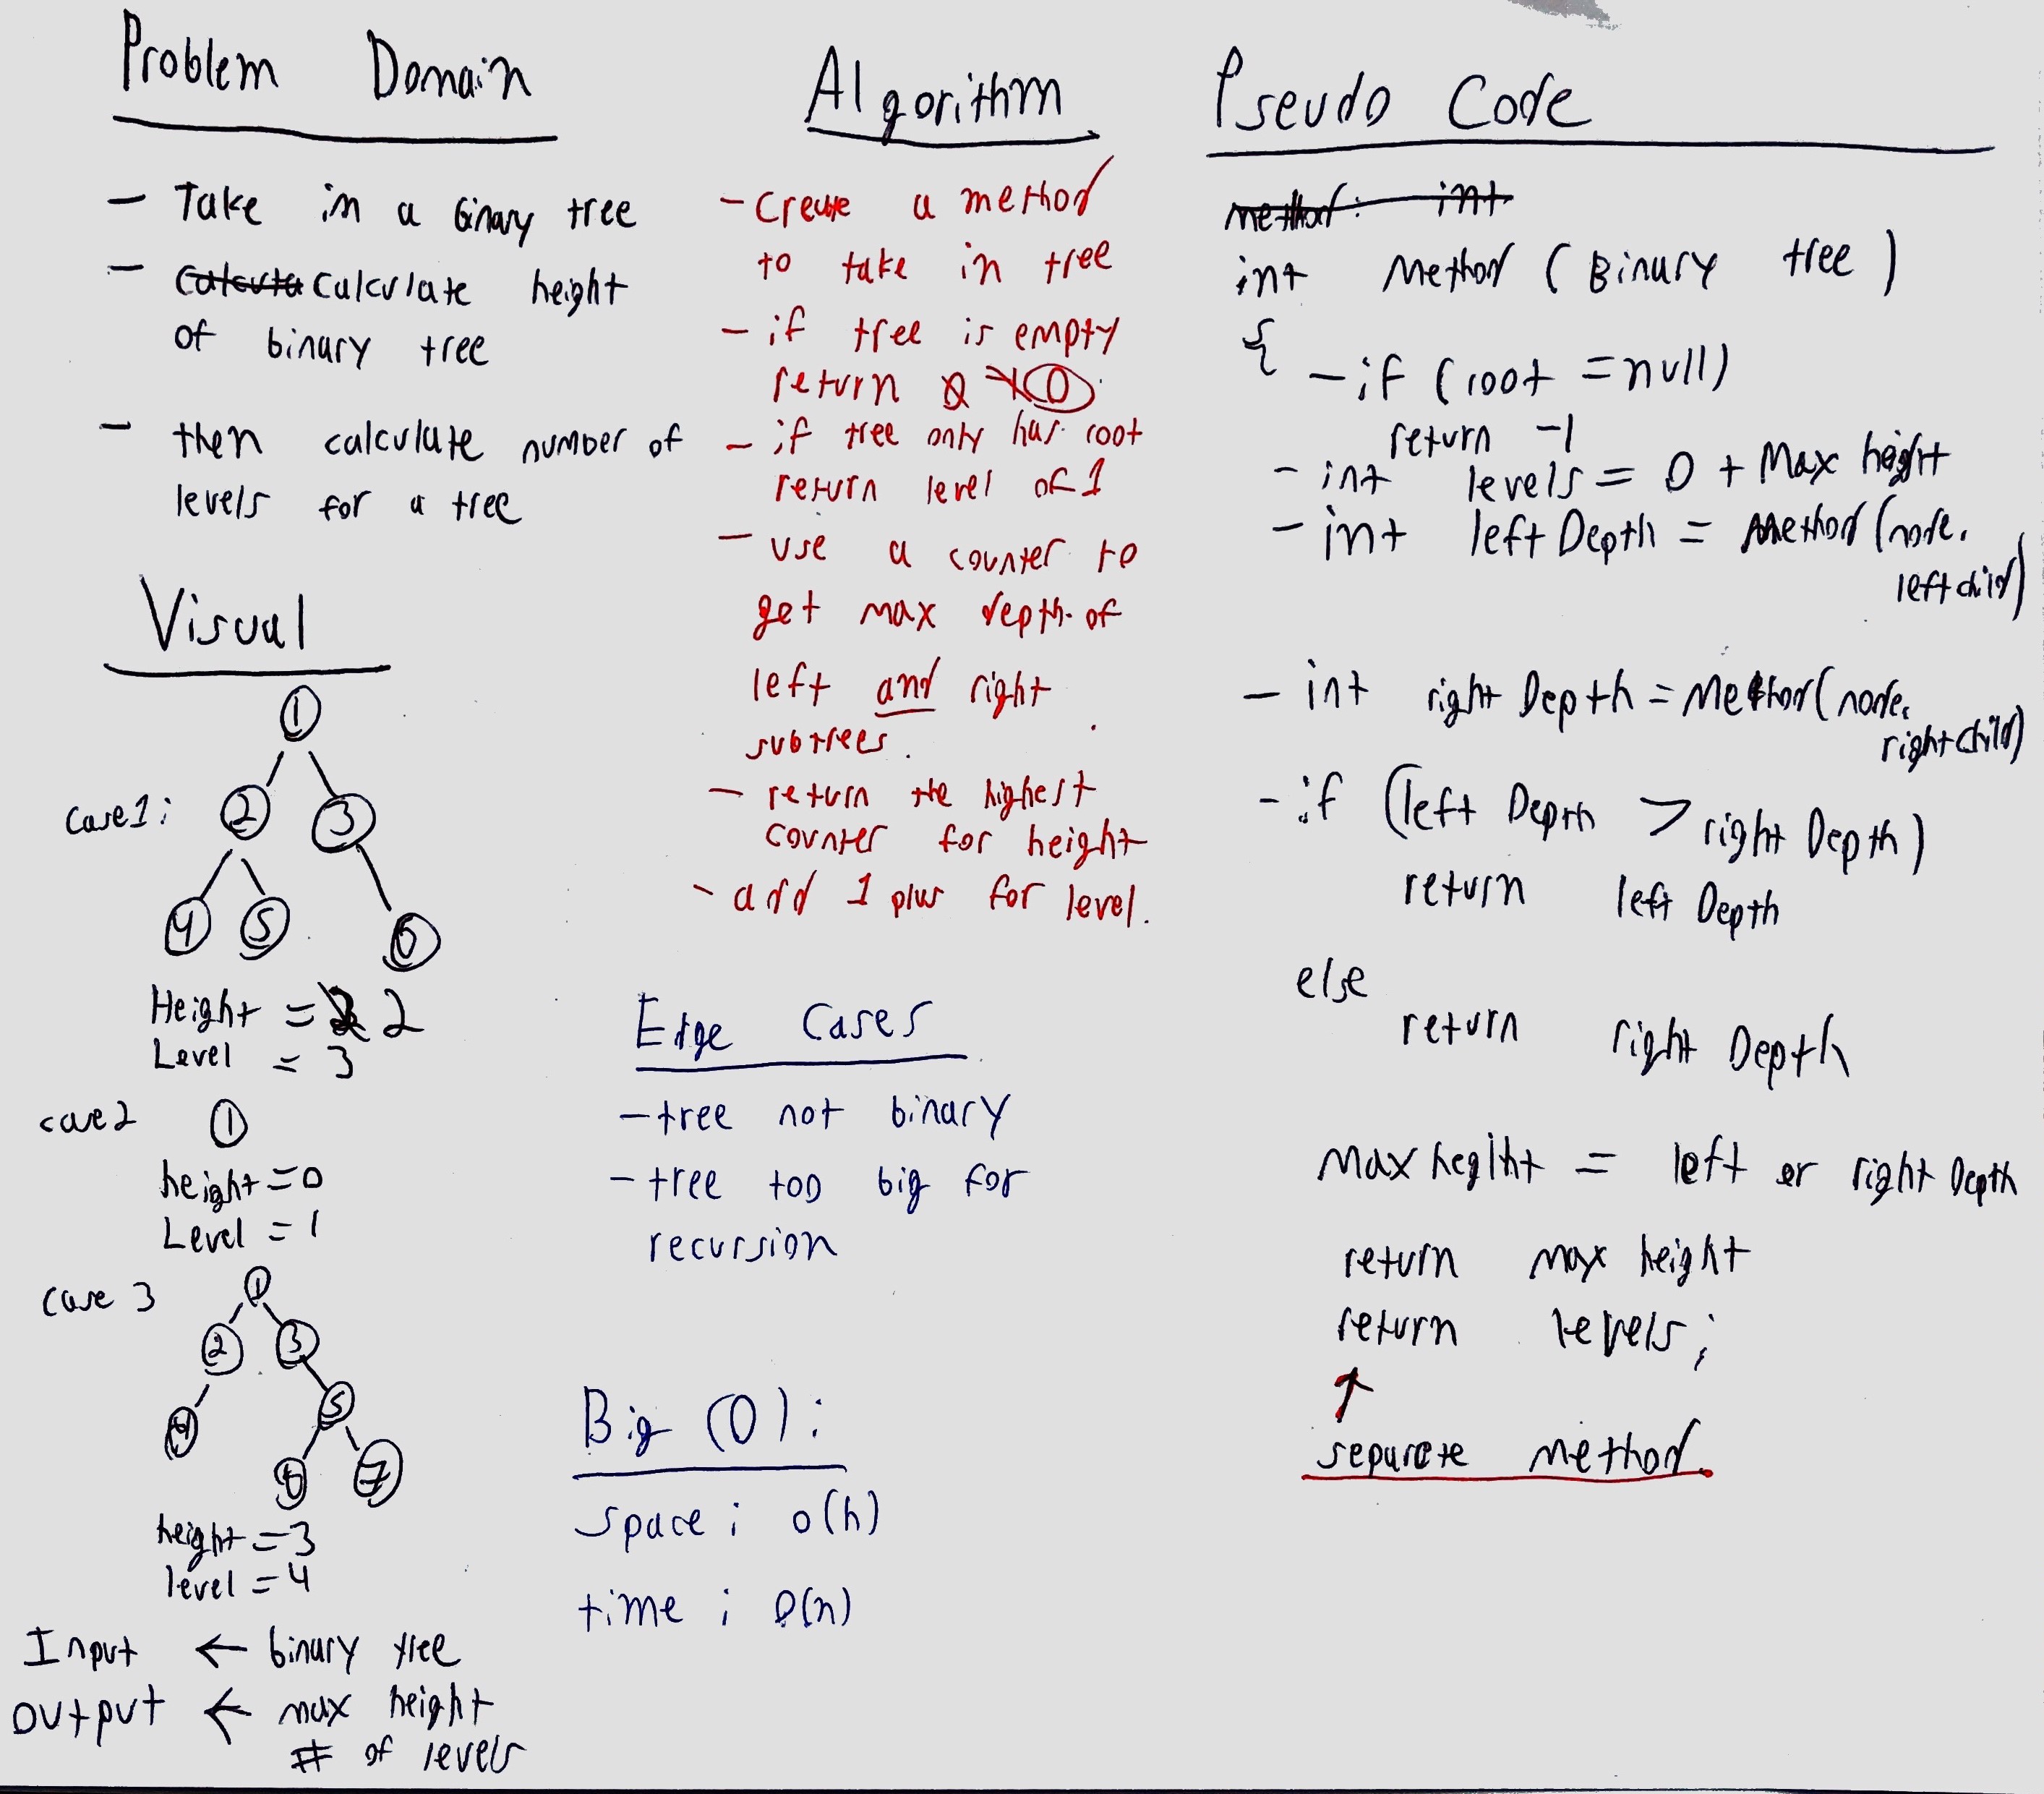 Problem Domain
- Take in a binary tree
- Calcula Calculate height
of binary tree
- then calculate number of
levels for a tree
Visual
1
Case1:
2 3
4 5 6
Height = 2
Level = 3
case2
1
height=0
Level = 1
case 3
1
2 3
4 5
6 7
height=3
level=4
Input ← binary tree
Output ← max height
# of levels
Algorithm
- Create a method
to take in tree
- if tree is empty
return 0
- if tree only has root
return level of 1
- use a counter to
get max depth of
left and right
subtrees.
- return the highest
counter for height
- add 1 plus for level.
Edge Cases
- tree not binary
- tree too big for
recursion
Big (O):
space; o(h)
time; O(n)
Pseudo Code
method: int
int Method (Binary tree)
{ - if (root = null)
return -1
- int levels = 0 + Max height
- int left Depth = Method (node.
leftchild)
- int right Depth = Method(node.
rightchild)
- if (left Depth > right Depth)
return left Depth
else
return right Depth
max hegiht = left or right Depth
return max height
return levels;
↑
separate method.